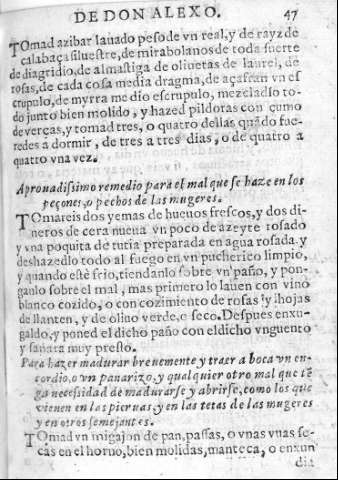 DE DON ALEXO. 47
TOmad azibar lauado peso de vn real, y de rayz de
calabaça siluestre, de mirabolanos de toda suerte
de diagridio, de almastiga de oliuetas de laurel, de
rosas, de cada cosa media dragma, de açafran vn es
crupulo, de myrra medio escrupulo, mezcladlo to-
do junto bien molido, y hazed pildoras con çumo
de verças, y tomad tres, o quatro dellas quãdo fue-
redes a dormir, de tres a tres dias, o de quatro a
quatro vna vez.
Aprouadissimo remedio para el mal que se haze en los
peçones, o pechos de las mugeres.
TOmareis dos yemas de hueuos frescos, y dos di-
neros de cera nueua vn poco de azeyte rosado
y vna poquita de tutia preparada en agua rosada y
deshazedlo todo al fuego en vn pucherico limpio,
y quando estè frio, tiendanlo sobre vn paño, y pon-
ganlo sobre el mal, mas primero lo lauen con vino
blanco cozido, o con cozimiento de rosas y hojas
de llanten, y de oliuo verde, o seco. Despues enxu-
galdo, y poned el dicho paño con el dicho vnguento
y sanara muy presto.
Para hazer madurar breuemente y traer a boca vn en-
cordio, o vn panarizo, y qualquier otro mal que tẽ
ga necessidad de madurarse y abrirse, como los que
vienen en las piernas, y en las tetas de las mugeres
y en otros semejantes.
TOmad vn migajon de pan, passas, o vnas vuas se-
cas en el horno, bien molidas, manteca, o enxun
dia